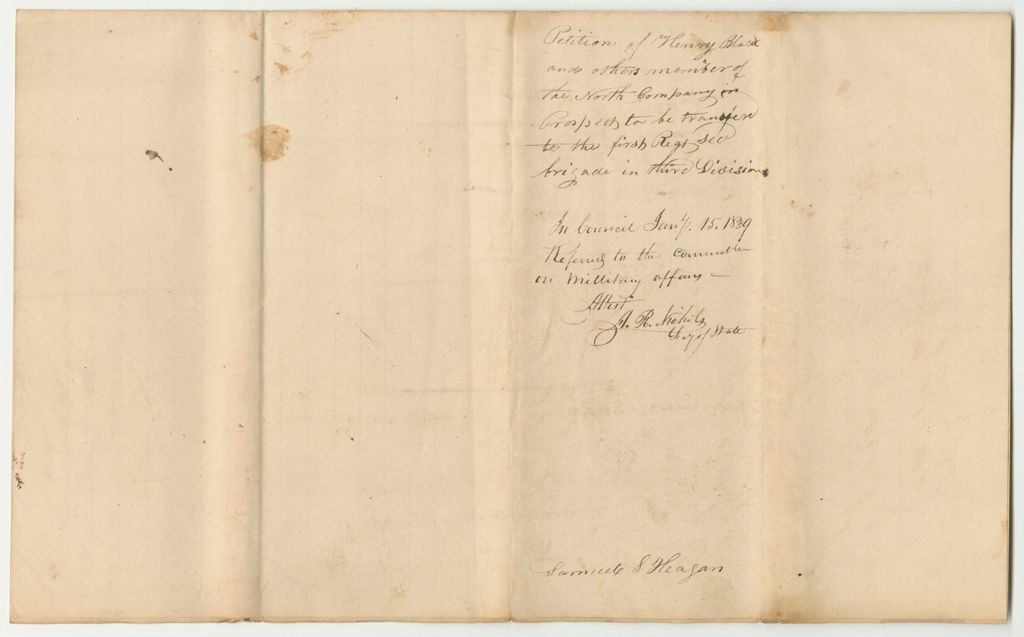 Petition of Henry Black
and others member of
the North Company in
Prospect to be transfered
to the first Regt Sec
brigade in third Division
In Council Jany. 15. 1839
Referred to the committee
on Millitary affairs —
Attest
A. R. Nichols
Secy of State
Samuel S Heagan